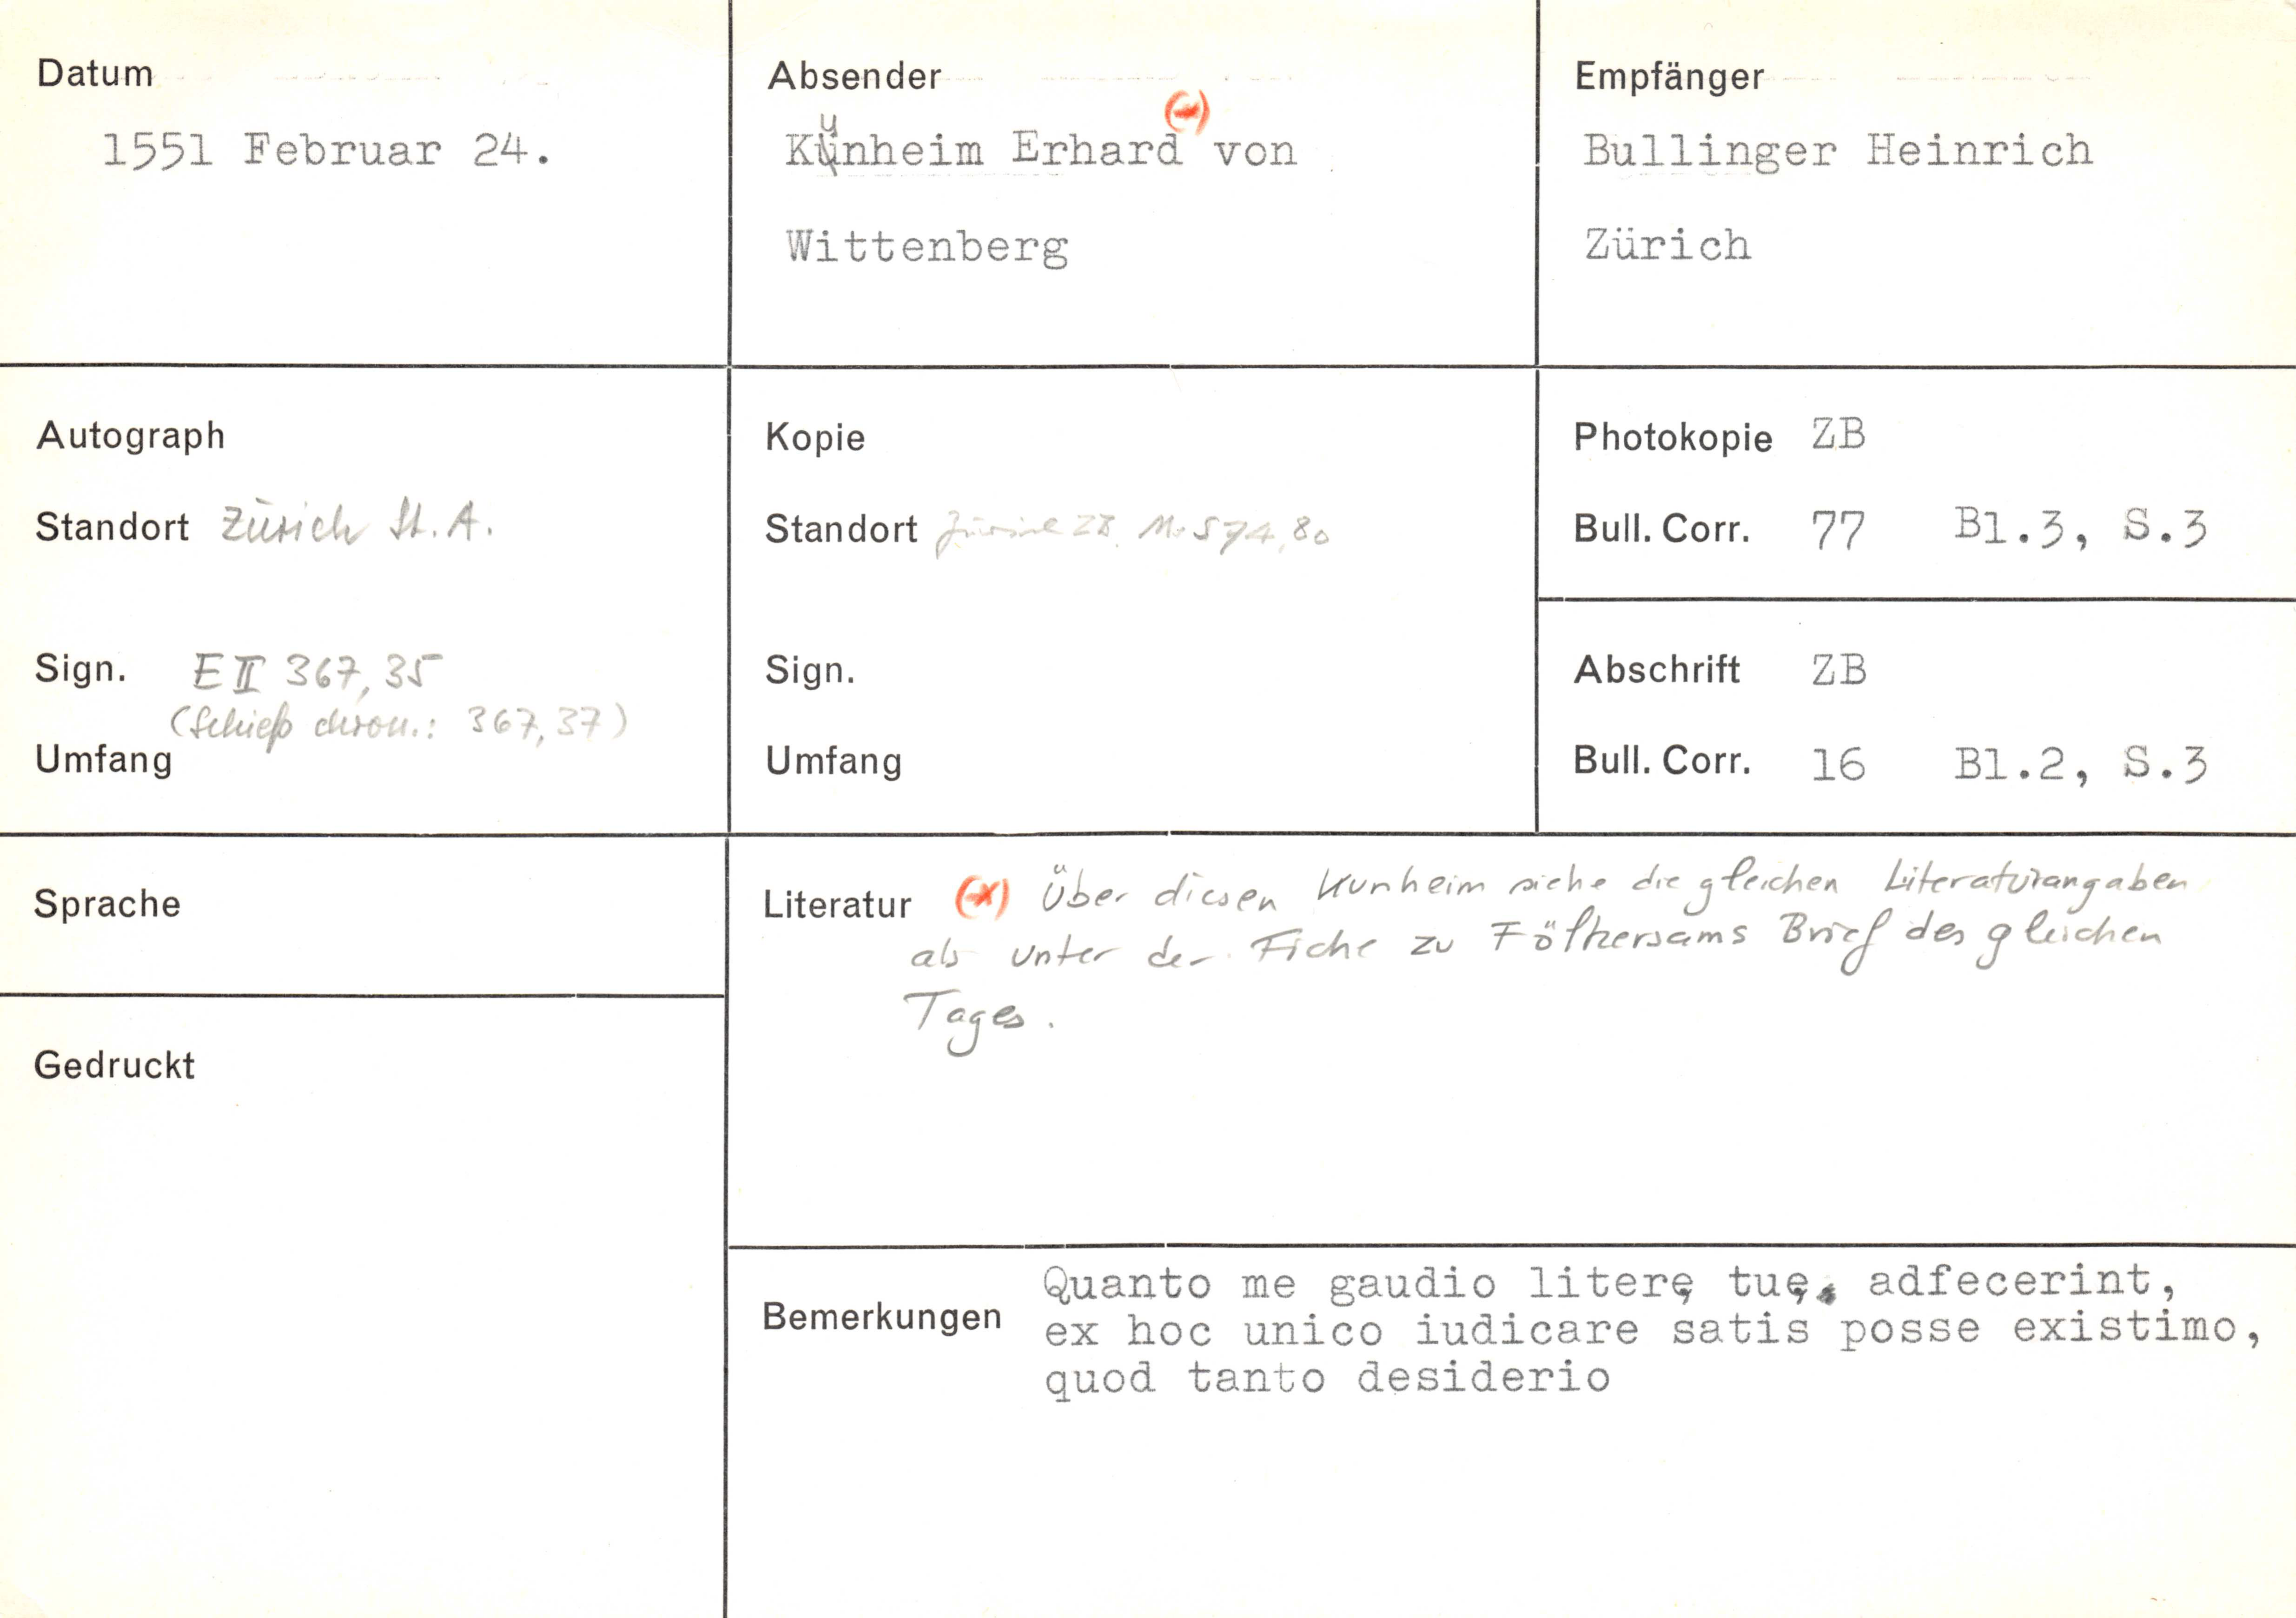 Datum
1551 Februar 24.
Absender
Kunheim Erhard (x) von
Wittenberg
Empfänger
Bullinger Heinrich
Zürich
Autograph
Standort Zürich St. A.
Sign. E II 367, 35
(Schieß chron.: 367, 37)
Umfang
Kopie
Standort Zürich ZB Ms S 74, 80
Sign.
Umfang
Photokopie ZB
Bull. Corr. 77 Bl.3, S.3
Abschrift ZB
Bull. Corr. 16 Bl.2, S.3
Sprache
Gedruckt
Literatur (x) Über diesen Kunheim siehe die gleichen Literaturangaben
als unter der Fiche zu Fölkersams Brief des gleichen
Tages.
Bemerkungen
Quanto me gaudio literę tuę, adfecerint,
ex hoc unico iudicare satis posse existimo,
quod tanto desiderio